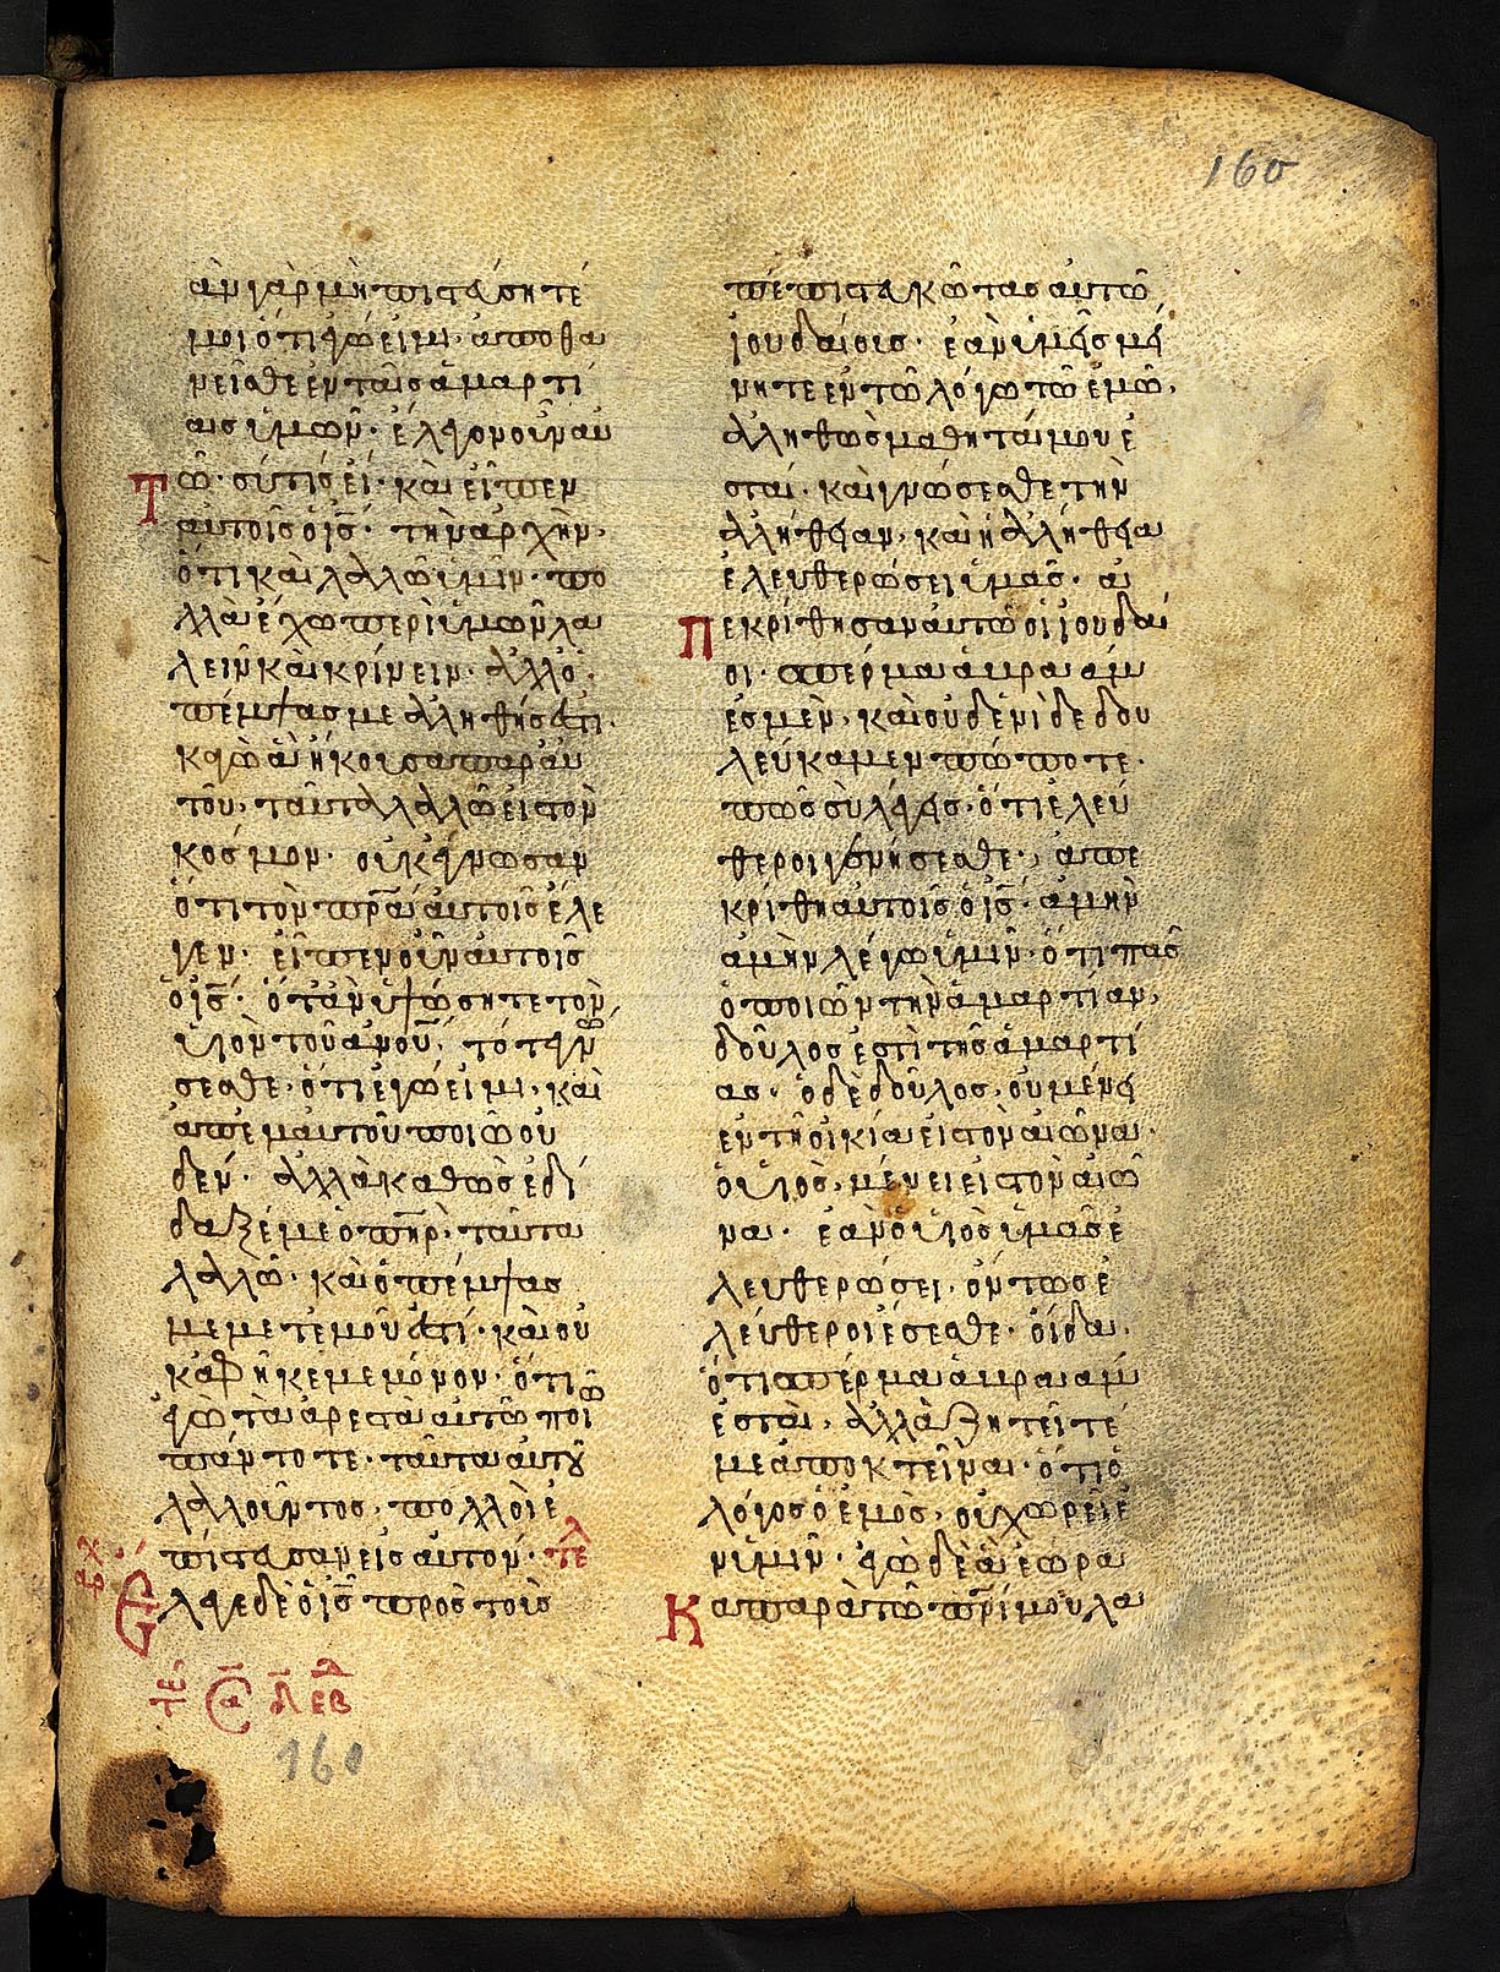 160
ἀν γὰρ μὴ πιστεύσητέ
μοι ὅτι ἐγώ εἰμι· ἀποθα
νεῖσθε ἐν ταῖς ἁμαρτί
αις ὑμῶν· ἔλεγον οὖν αὐ
τῶ· σὺ τίς εἶ· καὶ εἶπεν
αὐτοῖς ὁ ις̅· τὴν ἀρχὴν,
ὅτι καὶ λαλῶ ὑμῖν· πο
λλὰ ἔχω περὶ ὑμῶν λα
λεῖν καὶ κρίνειν· ἀλλ ὁ
πέμψας με ἀληθής ἐστι·
κἀγὼ ἃ ἤκουσα παρ αὐ
τοῦ, ταῦτα λαλῶ εἰς τὸν
κόσμον· οὐκ ἔγνωσαν
ὅτι τὸν πρ̅α αὐτοῖς ἔλε
γεν· εἶπεν οὖν αὐτοῖς
ὁ ις̅· ὅταν ὑψώσητε τὸν
υἱὸν τοῦ ἀνου̅, τότε γνώ
σεσθε, ὅτι ἐγώ εἰμι, καὶ
ἀπ ἐμαυτοῦ ποιῶ οὐ
δέν· ἀλλὰ καθὼς ἐδί
δαξέ με ὁ πη̅ρ, ταῦτα
λαλῶ· καὶ ὁ πέμψας
με μετ ἐμοῦ ἐστί· καὶ οὐ
κ ἀφῆκέ με μόνον· ὅτι
ἐγὼ τὰ ἀρεστὰ αὐτῶ ποιῶ
πάντοτε· ταῦτα αὐτοῦ
λαλοῦντος, πολλοὶ ἐ
πίστευσαν εἰς αὐτόν· τε̅λ
Ἔλεγε δὲ ὁ ις̅ πρὸς τοὺς
160
πεπιστευκότας αὐτῶ
ἰουδαίοις· ἐὰν ὑμεῖς μεί
νητε ἐν τῶ λόγω τῶ ἐμῶ,
ἀληθῶς μαθηταί μου ἐ
σταί· καὶ γνώσεσθε τὴν
ἀλήθειαν, καὶ ἡ ἀλήθεια
ἐλευθερώσει ὑμᾶς· ἀ
Πεκρίθησαν αὐτῶ οἱ ἰουδαῖ
οι· σπέρμα ἁβραάμ
ἐσμὲν, καὶ οὐδενὶ δεδου
λεύκαμεν πώποτε·
πῶς σὺ λέγεις· ὅτι ἐλεύ
θεροι γενήσεσθε·, ἀπε
κρίθη αὐτοῖς ὁ ις̅· ἀμὴν
ἀμὴν λέγω ὑμῖν· ὅτι πᾶς
ὁ ποιῶν τὴν ἁμαρτίαν,
δοῦλος ἐστὶ τῆς ἁμαρτί
ας· ὁ δὲ δοῦλος, οὐ μένει
ἐν τῆ οἰκία εἰς τὸν αἰῶνα·
ὁ υἱὸς, μένει εἰς τὸν αἰῶ
να· ἐὰν ὁ υἱὸς ὑμᾶς ἐ
λευθερώσει, ὄντως ἐ
λεύθεροι ἔσεσθε· οἶδα,
ὅτι σπέρμα ἁβραάμ
ἐσταὶ, ἀλλὰ ζητεῖτέ
με ἀποκτεῖναι· ὅτι ὁ
λόγος ὁ ἐμὸς, οὐ χωρεῖ ἐ
ν ὑμῖν· ἐγὼ δὲ ἃ ἑώρα
Κα παρὰ τῶ πρ̅ι μου λα